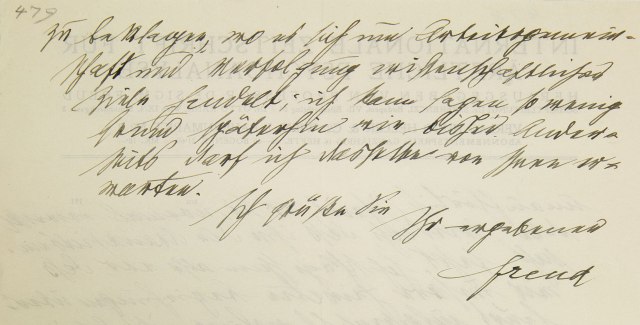 479
zu beklagen, wo es sich um Arbeitsgemein-
schaft und Verfolgung wissenschaftlicher
Ziele handelt; ich kann sagen so wenig
späterhin wie bisher. Ander-
seits darf ich dasselbe von Ihnen er-
warten.
Ich grüße Sie
Ihr ergebener
Freud